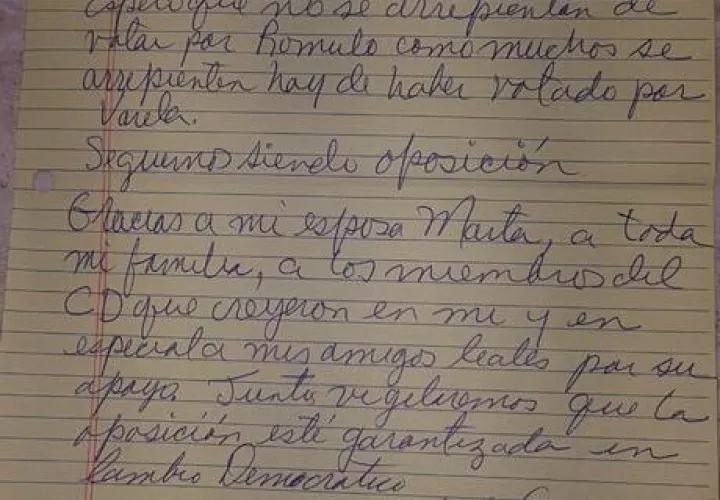 espero que no se arrepientan de
votar por Romulo como muchos se
arrepienten hoy de haber votado por
Varela.
Seguimos siendo oposición
Gracias a mi esposa Marta, a toda
mi familia, a los miembros del
CD que creyeron en mi y en
especial a mis amigos leales por su
apoyo. Juntos vigilaremos que la
oposición esté garantizada en
Cambio Democratico